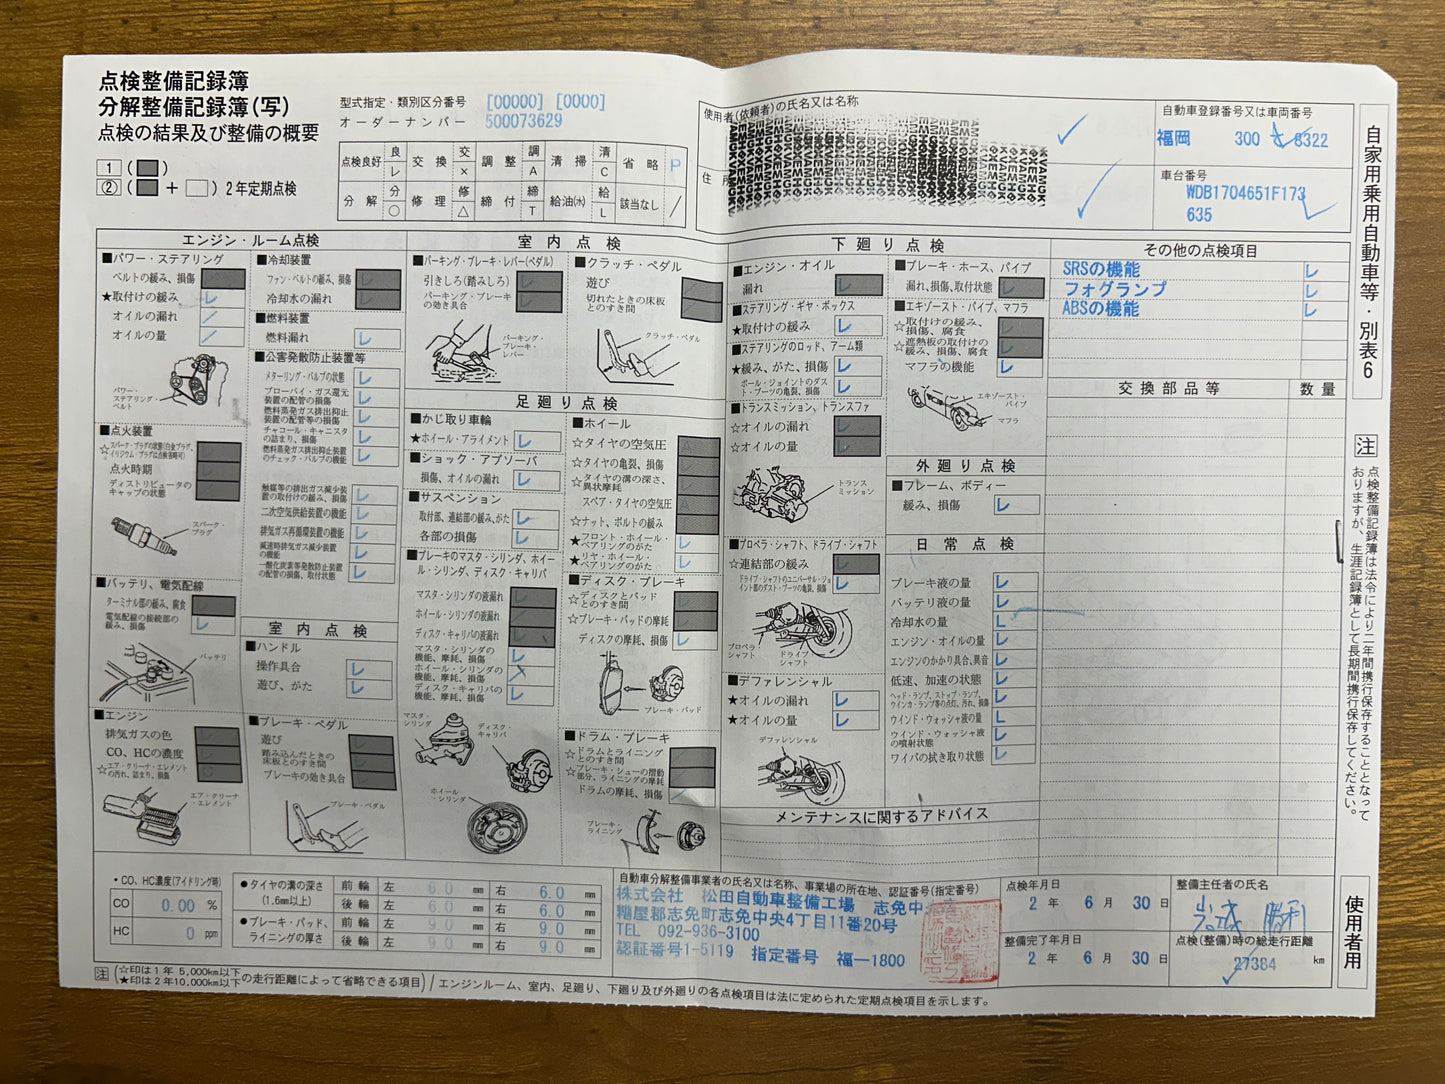 点検整備記録簿
分解整備記録簿(写)
点検の結果及び整備の概要
1 ( )
② ( + ) 2年定期点検
型式指定・類別区分番号 [00000] [0000]
オーダーナンバー 500073629
点検良好 良 レ 交換 交 × 調整 調 A 清掃 清 C 省略 P
分解 分 ○ 修理 修 △ 締付 締 T 給油(水) 給 L 該当なし /
使用者(依頼者)の氏名又は名称
住所
自動車登録番号又は車両番号
福岡 300 8322
車台番号
WDB1704651F173
635
自家用乗用自動車等・別表6
エンジン・ルーム点検
■パワー・ステアリング
ベルトの緩み、損傷
★取付けの緩み
オイルの漏れ
オイルの量
パワー・
ステアリング・
ベルト
■点火装置
☆スパーク・プラグの状態(白金プラグ、
イリジウム・プラグは点検省略可)
点火時期
ディストリビュータの
キャップの状態
スパーク・
プラグ
■バッテリ、電気配線
ターミナル部の緩み、腐食
電気配線の接続部の
緩み、損傷
バッテリ
■エンジン
排気ガスの色
CO、HCの濃度
☆エア・クリーナ・エレメント
の汚れ、詰まり、損傷
エア・クリーナ
・エレメント
■冷却装置
ファン・ベルトの緩み、損傷
冷却水の漏れ
■燃料装置
燃料漏れ
■公害発散防止装置等
メターリング・バルブの状態
ブローバイ・ガス還元
装置の配管の損傷
燃料蒸発ガス排出抑止
装置の配管等の損傷
チャコール・キャニスタ
の詰まり、損傷
燃料蒸発ガス排出抑止装置
のチェック・バルブの機能
触媒等の排出ガス減少装
置の取付けの緩み、損傷
二次空気供給装置の機能
排気ガス再循環装置の機能
減速時排気ガス減少装置
の機能
一酸化炭素等発散防止装置
の配管の損傷、取付状態
室内点検
■ハンドル
操作具合
遊び、がた
■ブレーキ・ペダル
遊び
踏み込んだときの
床板とのすき間
ブレーキの効き具合
ブレーキ・ペダル
室内点検
■パーキング・ブレーキ・レバー(ペダル)
引きしろ(踏みしろ)
パーキング・ブレーキ
の効き具合
パーキング・
ブレーキ・
レバー
■クラッチ・ペダル
遊び
切れたときの床板
とのすき間
クラッチ・ペダル
足廻り点検
■かじ取り車輪
★ホイール・アライメント
■ショック・アブソーバ
損傷、オイルの漏れ
■サスペンション
取付部、連結部の緩み、がた
各部の損傷
■ブレーキのマスタ・シリンダ、ホイー
ル・シリンダ、ディスク・キャリパ
マスタ・シリンダの液漏れ
ホイール・シリンダの液漏れ
ディスク・キャリパの液漏れ
マスタ・シリンダの
機能、摩耗、損傷
ホイール・シリンダの
機能、摩耗、損傷
ディスク・キャリパの
機能、摩耗、損傷
マスタ・
シリンダ
ディスク・
キャリパ
ホイール・
シリンダ
■ホイール
☆タイヤの空気圧
☆タイヤの亀裂、損傷
☆タイヤの溝の深さ、
異状摩耗
スペア・タイヤの空気圧
☆ナット、ボルトの緩み
★フロント・ホイール・
ベアリングのがた
★リヤ・ホイール・
ベアリングのがた
■ディスク・ブレーキ
☆ディスクとパッド
とのすき間
☆ブレーキ・パッドの摩耗
ディスクの摩耗、損傷
ブレーキ・パッド
■ドラム・ブレーキ
☆ドラムとライニング
とのすき間
☆ブレーキ・シューの摺動
部分、ライニングの摩耗
ドラムの摩耗、損傷
ブレーキ・
ライニング
下廻り点検
■エンジン・オイル
漏れ
■ステアリング・ギヤ・ボックス
★取付けの緩み
■ステアリングのロッド、アーム類
★緩み、がた、損傷
ボール・ジョイントのダス
ト・ブーツの亀裂、損傷
■トランスミッション、トランスファ
☆オイルの漏れ
☆オイルの量
トランス
ミッション
■プロペラ・シャフト、ドライブ・シャフト
☆連結部の緩み
ドライブ・シャフトのユニバーサル・ジョ
イント部のダスト・ブーツの亀裂、損傷
プロペラ
シャフト
ドライブ・
シャフト
■デファレンシャル
★オイルの漏れ
★オイルの量
デファレンシャル
■ブレーキ・ホース、パイプ
漏れ、損傷、取付状態
■エキゾースト・パイプ、マフラ
☆取付けの緩み、
損傷、腐食
☆遮熱板の取付けの
緩み、損傷、腐食
マフラの機能
エキゾースト・
パイプ
マフラ
外廻り点検
■フレーム、ボディー
緩み、損傷
日常点検
ブレーキ液の量
バッテリ液の量
冷却水の量
エンジン・オイルの量
エンジンのかかり具合、異音
低速、加速の状態
ヘッド・ランプ、ストップ・ランプ、
ウインカ・ランプ等の点灯、汚れ、損傷
ウインド・ウォッシャ液の量
ウインド・ウォッシャ液
の噴射状態
ワイパの拭き取り状態
メンテナンスに関するアドバイス
その他の点検項目
SRSの機能
フォグランプ
ABSの機能
交換部品等 数量
注 点検整備記録簿は法令により二年間携行保存することとなって
おりますが、生涯記録簿として長期間携行保存してください。
使用者用
・CO、HC濃度(アイドリング時)
CO 0.00 %
HC 0 ppm
●タイヤの溝の深さ
(1.6mm以上)
前輪 左 6.0 mm 右 6.0 mm
後輪 左 6.0 mm 右 6.0 mm
●ブレーキ・パッド、
ライニングの厚さ
前輪 左 9.0 mm 右 9.0 mm
後輪 左 9.0 mm 右 9.0 mm
自動車分解整備事業者の氏名又は名称、事業場の所在地、認証番号(指定番号)
株式会社 松田自動車整備工場 志免中央店
糟屋郡志免町志免中央4丁目11番20号
TEL 092-936-3100
認証番号1-5119 指定番号 福-1800
点検年月日
2年 6月 30日
整備完了年月日
2年 6月 30日
整備主任者の氏名
点検(整備)時の総走行距離
27384 km
注 (☆印は1年 5,000km以下
★印は2年10,000km以下の走行距離によって省略できる項目) / エンジンルーム、室内、足廻り、下廻り及び外廻りの各点検項目は法に定められた定期点検項目を示します。